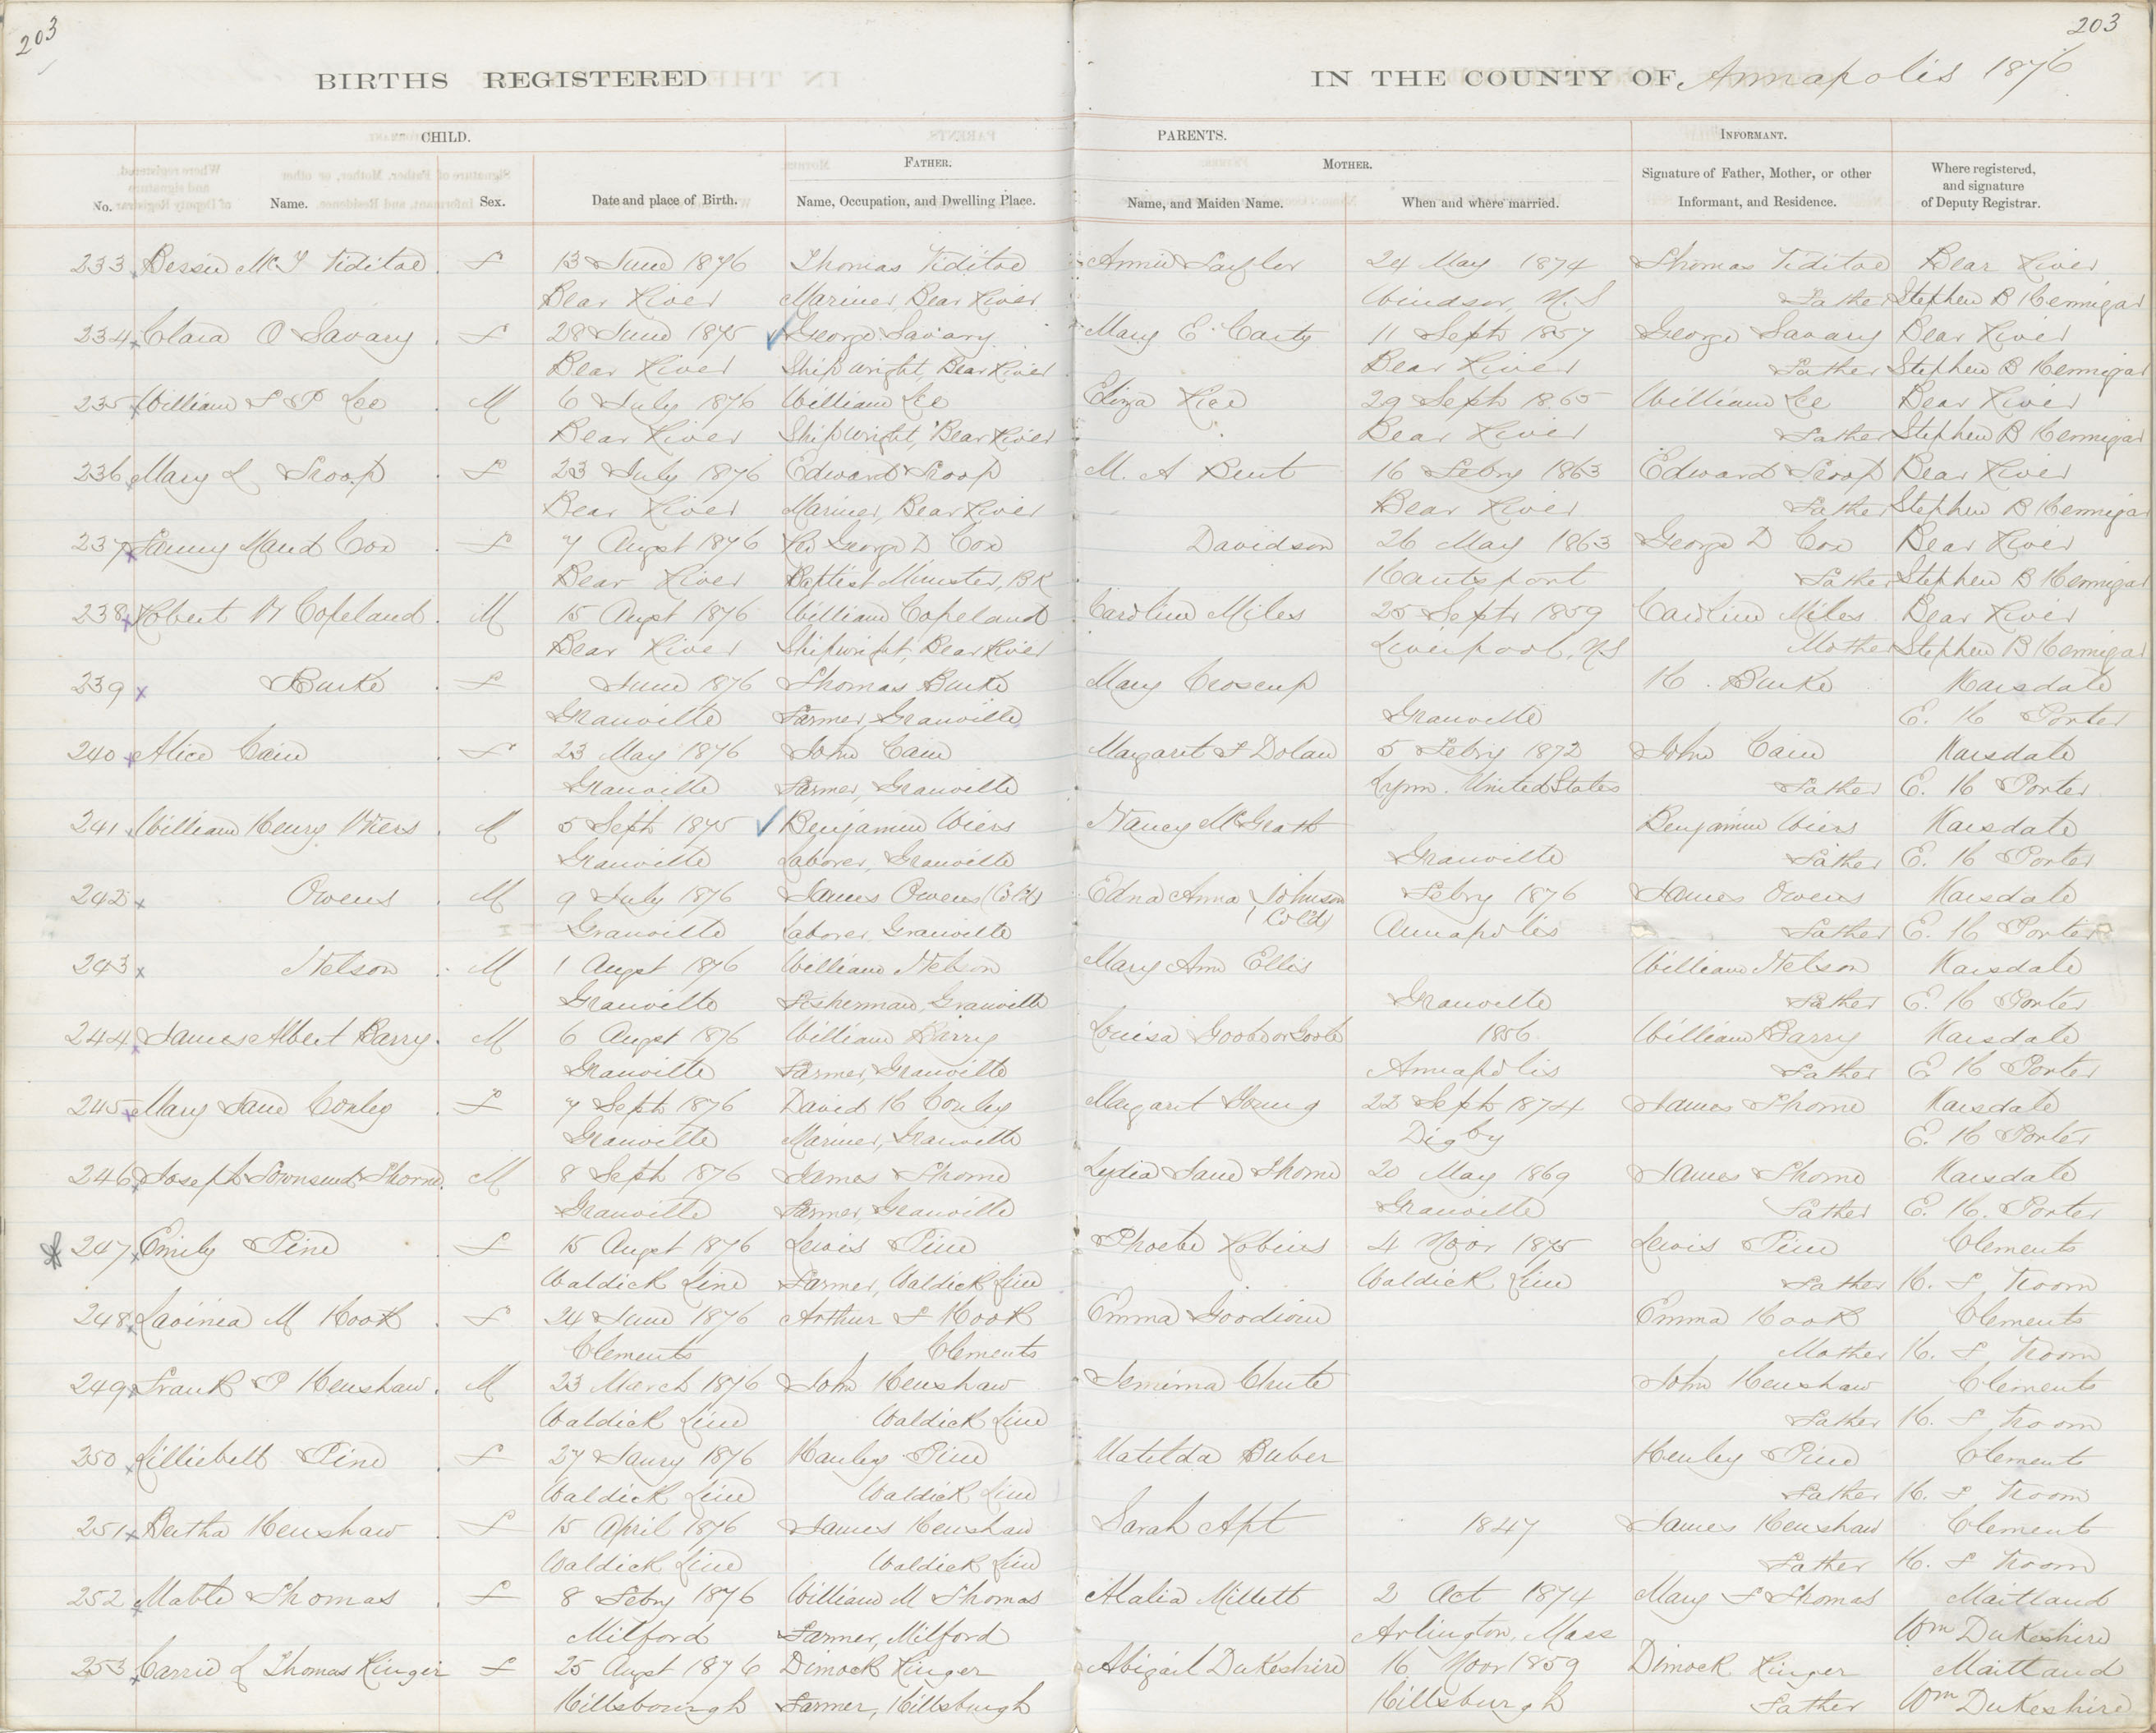 203
203
BIRTHS REGISTERED IN THE COUNTY OF Annapolis 1876
CHILD. PARENTS. INFORMANT.
FATHER. MOTHER.
No. Name. Sex. Date and place of Birth. Name, Occupation, and Dwelling Place. Name, and Maiden Name. When and where married. Signature of Father, Mother, or other Informant, and Residence. Where registered, and signature of Deputy Registrar.
233 Bessie McJ Viditoe F 13 June 1876 Thomas Viditoe Annie Saxler 24 May 1874 Thomas Viditoe Bear River
Bear River Mariner, Bear River Windsor, N.S Father Stephen B Hennigar
234 Clara O Savary F 28 June 1875 George Savary Mary E Carty 11 Sept 1857 George Savary Bear River
Bear River Shipwright, Bear River Bear River Father Stephen B Hennigar
235 William F P Lee M 6 July 1876 William Lee Eliza Rice 29 Sept 1865 William Lee Bear River
Bear River Shipwright, Bear River Bear River Father Stephen B Hennigar
236 Mary L Troop F 23 July 1876 Edward Troop M. A Bent 16 Febry 1863 Edward Troop Bear River
Bear River Mariner, Bear River Bear River Father Stephen B Hennigar
237 Fanny Maud Cox F 7 Augst 1876 Rv George D Cox Davidson 26 May 1863 George D Cox Bear River
Bear River Baptist Minister, BR Hantsport Father Stephen B Hennigar
238 Robert W Copeland M 15 Augst 1876 William Copeland Caroline Miles 25 Septr 1859 Caroline Miles Bear River
Bear River Shipwright, Bear River Liverpool, NS Mother Stephen B Hennigar
239 Burke F June 1876 Thomas Burke Mary Croscup H. Burke Karsdale
Granville Farmer, Granville Granville E. H Porter
240 Alice Cain F 23 May 1876 John Cain Margaret F Dolan 5 Febry 1872 John Cain Karsdale
Granville Farmer, Granville Lynn. United States Father E. H Porter
241 William Henry Wiers M 5 Sept 1875 Benjamin Wiers Nancy McGrath Benjamin Wiers Karsdale
Granville Laborer, Granville Granville Father E. H Porter
242 Owens M 9 July 1876 James Owens (Cold) Edna Anna Johnson Febry 1876 James Owens Karsdale
Granville Laborer, Granville (Cold) Annapolis Father E. H Porter
243 Nelson M 1 Augst 1876 William Nelson Mary Ann Ellis William Nelson Karsdale
Granville Fisherman, Granville Granville Father E. H Porter
244 James Albert Barry M 6 Augst 1876 William Barry Louisa 1856 William Barry Karsdale
Granville Farmer, Granville Annapolis Father E H Porter
245 Mary Jane Conley F 7 Sept 1876 David H Conley Margaret Young 22 Sept 1874 James Thorne Karsdale
Granville Mariner, Granville Digby E. H Porter
246 Joseph Townsend Thorne M 8 Sept 1876 James Thorne Lydia Jane Thorne 20 May 1869 James Thorne Karsdale
Granville Farmer, Granville Granville Father E. H. Porter
247 Emily Pine F 15 Augst 1876 Lewis Pine Phoebe Robins 4 Novr 1875 Lewis Pine Clements
Waldick Line Farmer, Waldick Line Waldick Line Father H. F Vroom
248 Lavinea M Hook F 24 June 1876 Arthur F Hook Emma Goodwin Emma Hook Clements
Clements Clements Mother H. F Vroom
249 Frank P Henshaw M 23 March 1876 John Henshaw Jemima Chute John Henshaw Clements
Waldick Line Waldick Line Father H. F Vroom
250 Lilliebell Pine F 27 Janry 1876 Hanley Pine Matilda Buber Henley Pine Clements
Waldick Line Waldick Line Father H. F Vroom
251 Bertha Henshaw F 15 April 1876 James Henshaw Sarah Apt 1847 James Henshaw Clements
Waldick Line Waldick Line Father H. F Vroom
252 Mable Thomas F 8 Febry 1876 William M Thomas Alalia Millett 2 Oct 1874 Mary F Thomas Maitland
Milford Farmer, Milford Arlington, Mass Wm Dukeshire
253 Carrie L Thomas Ringer F 25 Augst 1876 Dimock Ringer Abigail Dukeshire 16 Novr 1859 Dimock Ringer Maitland
Hillsbourgh Farmer, Hillsburgh Hillsburgh Father Wm Dukeshire